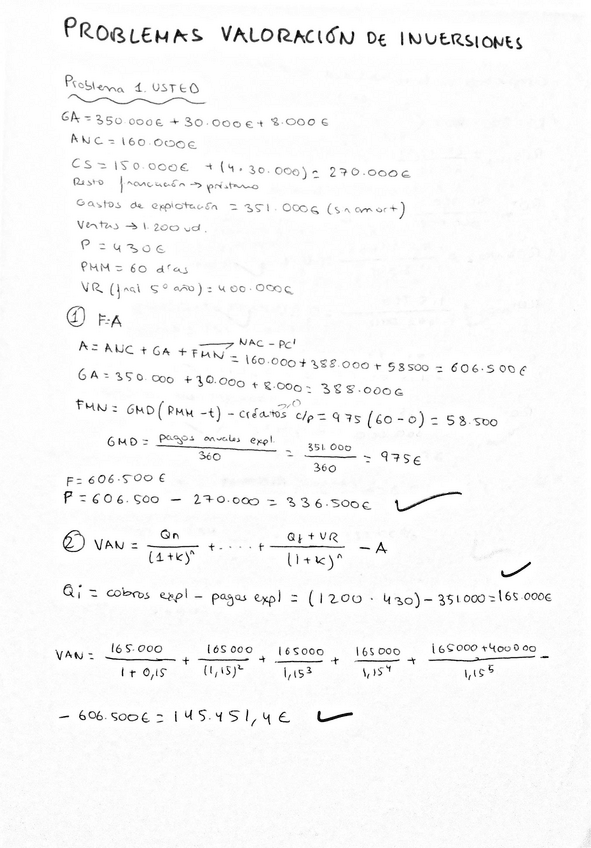 PROBLEMAS VALORACIÓN DE INVERSIONES
Problema 1. USTED
GA = 350.000€ + 30.000€ + 8.000€
ANC = 160.000€
CS = 150.000€ + (4 · 30.000) = 270.000€
Resto financiación → préstamo
Gastos de explotación = 351.000€ (sn amort)
Ventas → 1.200 ud.
P = 430€
PMM = 60 días
VR (final 5º año) = 400.000€
① F=A
NAC - PC'
A = ANC + GA + FMN = 160.000 + 388.000 + 58500 = 606.500€
GA = 350.000 + 30.000 + 8.000 = 388.000€
FMN = GMD (PMM - t) - créditos c/p = 975 (60 - 0) = 58.500
GMD = pagos anuales expl. / 360 = 351.000 / 360 = 975€
F = 606.500€
P = 606.500 - 270.000 = 336.500€
② VAN = Qn / (1+k)^n + ..... + Qf + VR / (1+k)^n - A
Qi = cobros expl - pagos expl = (1200 · 430) - 351000 = 165.000€
VAN = 165.000 / 1 + 0,15 + 165000 / (1,15)² + 165000 / 1,15³ + 165000 / 1,15⁴ + 165000 + 400000 / 1,15⁵ -
- 606.500€ = 145.451,4€